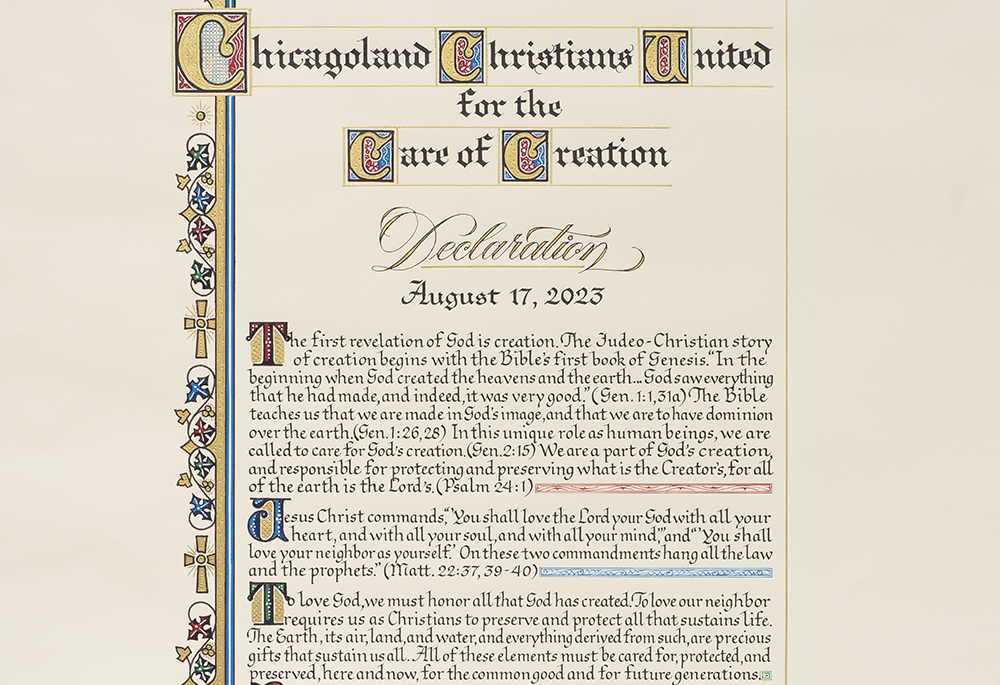 Chicagoland Christians United
for the
Care of Creation
Declaration
August 17, 2023
The first revelation of God is creation. The Judeo-Christian story
of creation begins with the Bible's first book of Genesis. "In the
beginning when God created the heavens and the earth... God saw everything
that he had made, and indeed, it was very good." (Gen. 1:1,31a) The Bible
teaches us that we are made in God's image, and that we are to have dominion
over the earth. (Gen. 1:26,28) In this unique role as human beings, we are
called to care for God's creation. (Gen. 2:15) We are a part of God's creation,
and responsible for protecting and preserving what is the Creator's, for all
of the earth is the Lord's. (Psalm 24:1)
Jesus Christ commands, "'You shall love the Lord your God with all your
heart, and with all your soul, and with all your mind,'" and "'You shall
love your neighbor as yourself.' On these two commandments hang all the law
and the prophets." (Matt. 22:37, 39-40)
To love God, we must honor all that God has created. To love our neighbor
requires us as Christians to preserve and protect all that sustains life.
The Earth, its air, land, and water, and everything derived from such, are precious
gifts that sustain us all. All of these elements must be cared for, protected, and
preserved, here and now, for the common good and for future generations.